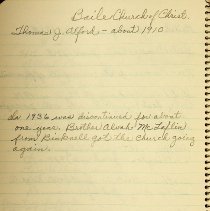 Baile Church of Christ.
Thomas J. Alford - about 1910
In 1936 was discontinued for about
one year. Brother Alvah McLaflin
from Bicknell got the Church going
again.